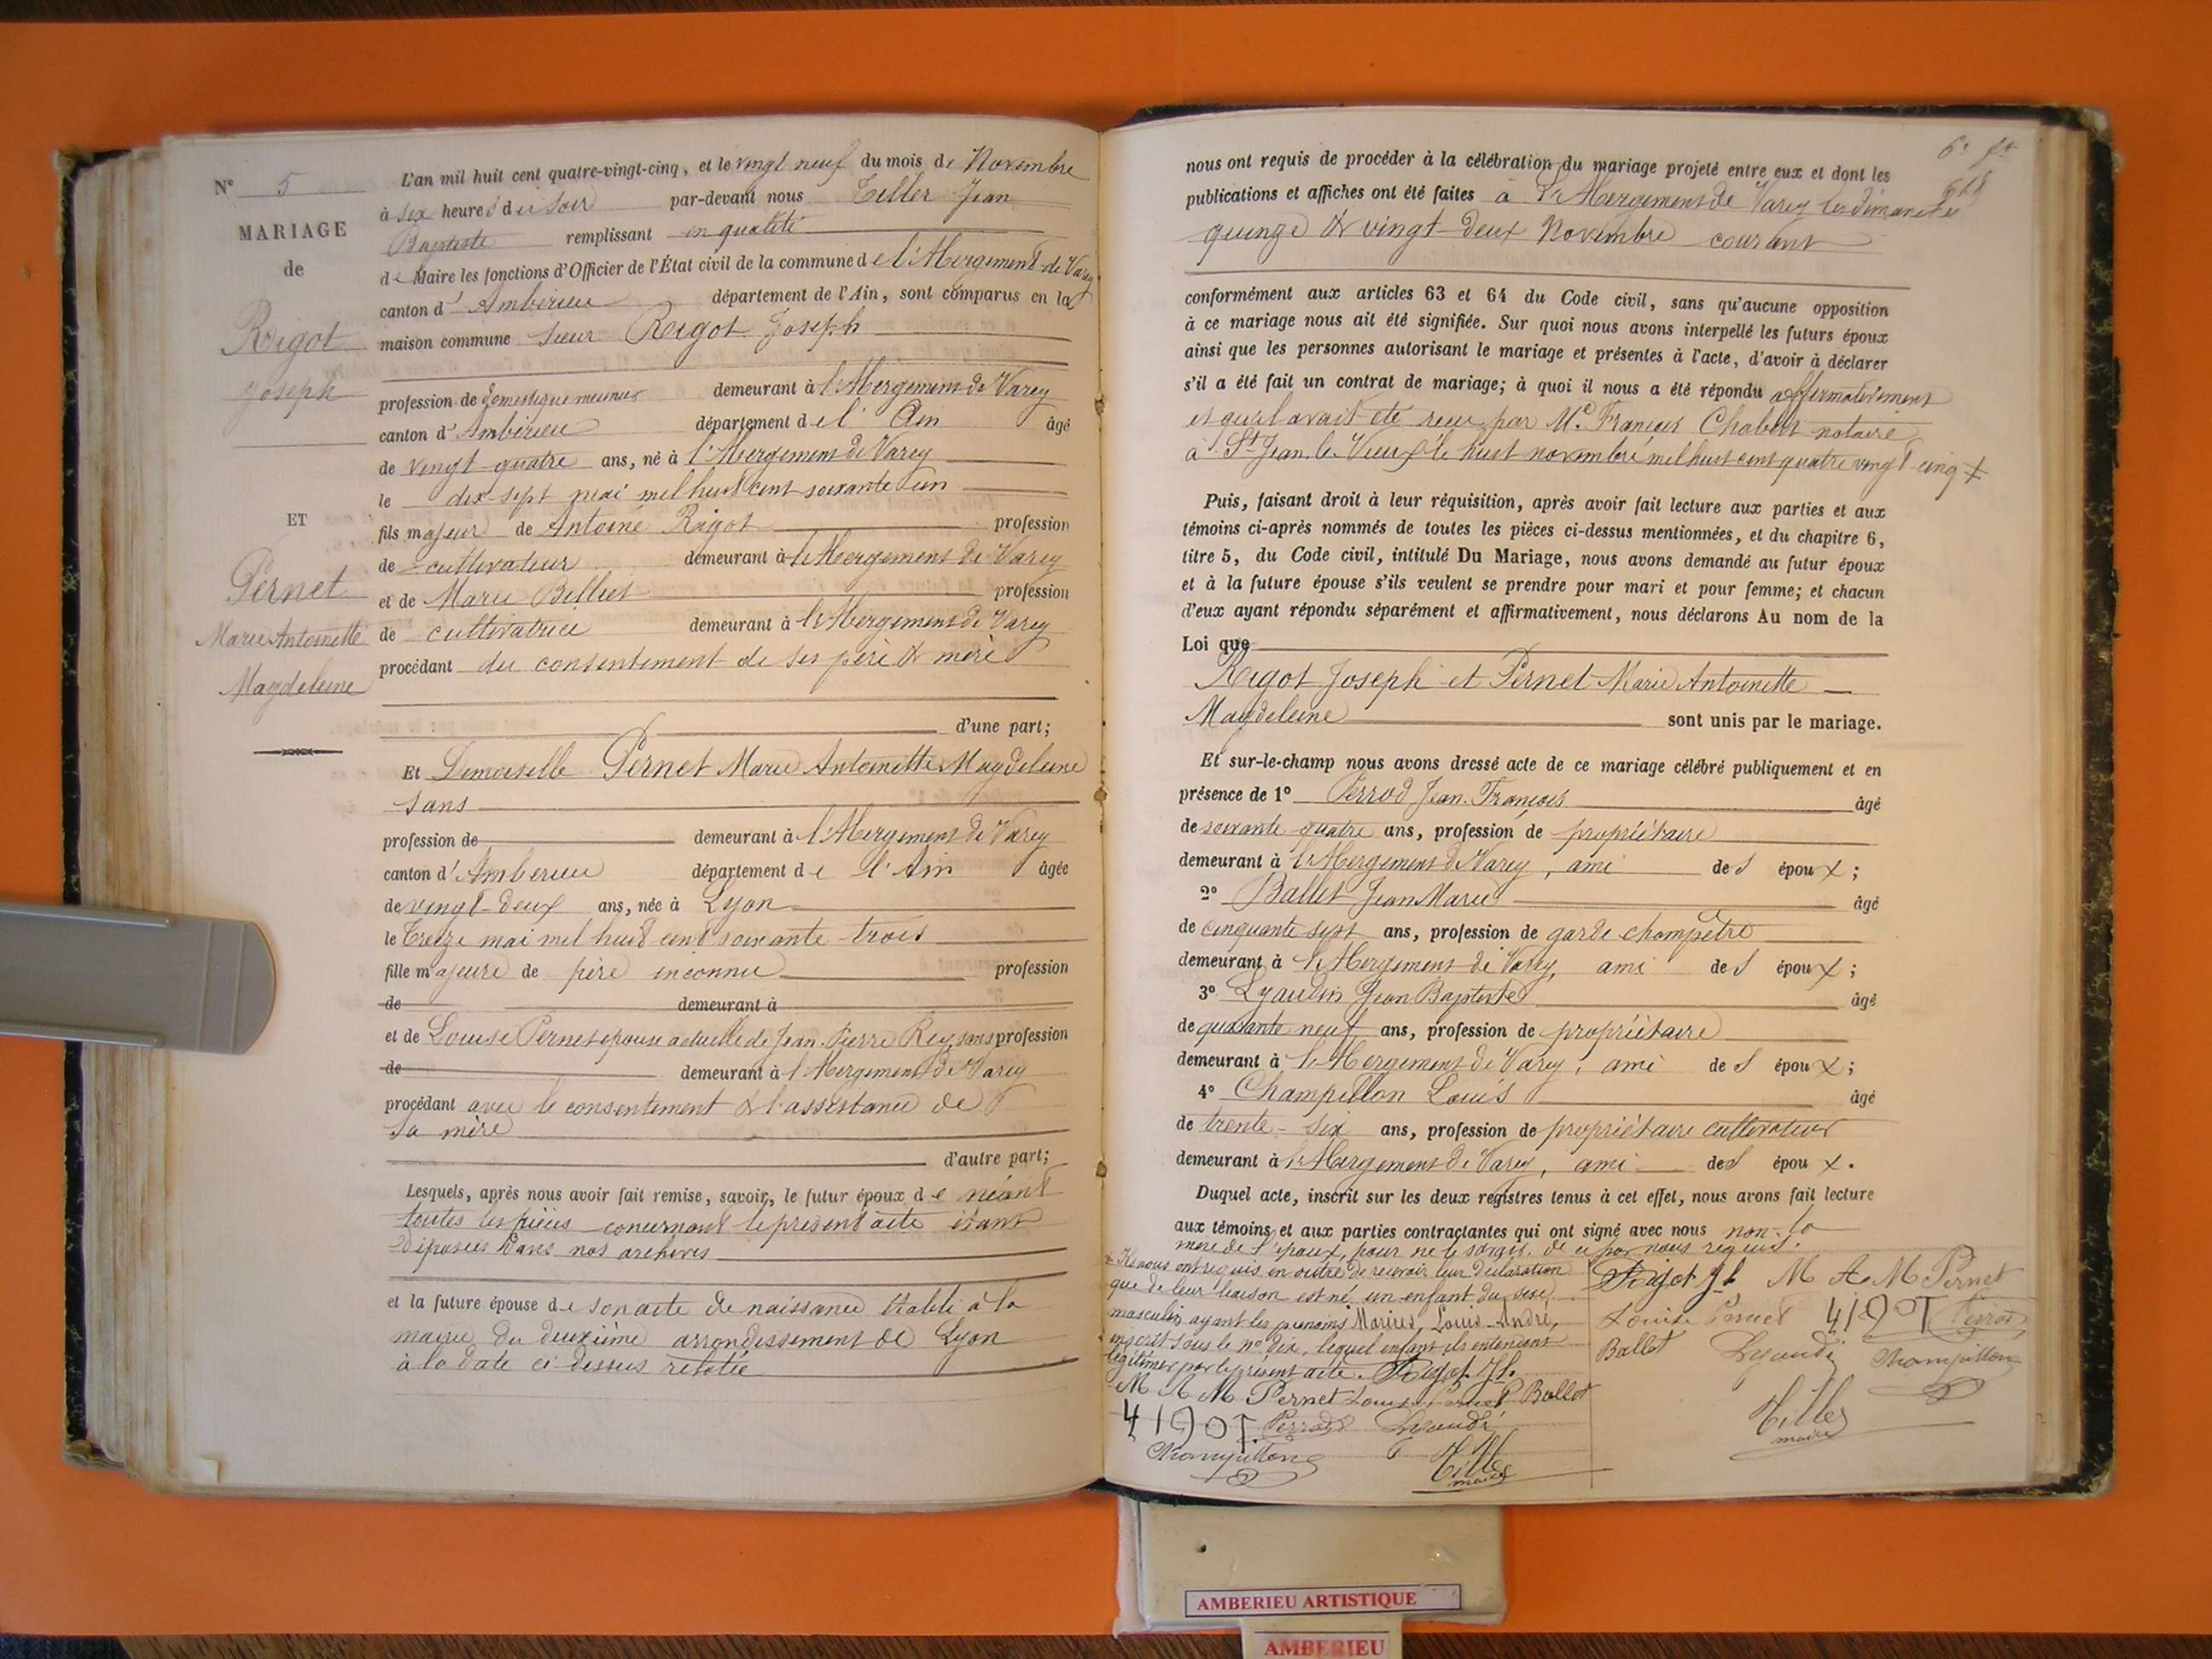 N° 5
MARIAGE
de
Rigot
Joseph
ET
Pernet
Marie Antoinette
Magdeleine
L'an mil huit cent quatre-vingt-cinq, et le vingt neuf du mois de Novembre
à six heures du soir par-devant nous Tiller Jean
Baptiste remplissant en qualité
de Maire les fonctions d'Officier de l'État civil de la commune de l'Abergement-de Varey
canton d'Ambérieu département de l'Ain, sont comparus en la
maison commune sieur Rigot Joseph
profession de domestique meunier demeurant à l'Abergement de Varey
canton d'Ambérieu département de l'Ain âgé
de vingt-quatre ans, né à l'Abergement de Varey
le dix-sept mai mil huit cent soixante un
fils majeur de Antoine Rigot profession
de cultivateur demeurant à l'Abergement de Varey
et de Marie Belliet profession
de cultivatrice demeurant à l'Abergement de Varey
procédant du consentement de ses père & mère
d'une part;
Et Demoiselle Pernet Marie Antoinette Magdeleine
sans
profession de demeurant à l'Abergement de Varey
canton d'Ambérieu département de l'Ain âgée
de vingt-deux ans, née à Lyon
le treize mai mil huit cent soixante-trois
fille majeure de père inconnu profession
de demeurant à
et de Louise Pernet épouse actuelle de Jean-Pierre Rey, sans profession
de demeurant à l'Abergement de Varey
procédant avec le consentement & l'assistance de
sa mère
d'autre part;
Lesquels, après nous avoir fait remise, savoir, le futur époux de néant
toutes les pièces concernant le présent acte étant
déposées dans nos archives
et la future épouse de son acte de naissance établi à la
mairie du deuxième arrondissement de Lyon
à la date ci-dessus relatée
6e ft
nous ont requis de procéder à la célébration du mariage projeté entre eux et dont les
publications et affiches ont été faites à l'Abergement de Varey les dimanches
quinze & vingt-deux Novembre courant
conformément aux articles 63 et 64 du Code civil, sans qu'aucune opposition
à ce mariage nous ait été signifiée. Sur quoi nous avons interpellé les futurs époux
ainsi que les personnes autorisant le mariage et présentes à l'acte, d'avoir à déclarer
s'il a été fait un contrat de mariage; à quoi il nous a été répondu affirmativement
et qu'il avait été reçu par Me François Chabert notaire
à St Jean le Vieux le huit novembre mil huit cent quatre vingt-cinq +
Puis, faisant droit à leur réquisition, après avoir fait lecture aux parties et aux
témoins ci-après nommés de toutes les pièces ci-dessus mentionnées, et du chapitre 6,
titre 5, du Code civil, intitulé Du Mariage, nous avons demandé au futur époux
et à la future épouse s'ils veulent se prendre pour mari et pour femme; et chacun
d'eux ayant répondu séparément et affirmativement, nous déclarons Au nom de la
Loi que
Rigot Joseph et Pernet Marie Antoinette
Magdeleine sont unis par le mariage.
Et sur-le-champ nous avons dressé acte de ce mariage célébré publiquement et en
présence de 1° Perrod Jean-François âgé
de soixante quatre ans, profession de propriétaire
demeurant à l'Abergement de Varey, ami des époux;
2° Ballet Jean Marie âgé
de cinquante sept ans, profession de garde champêtre
demeurant à l'Abergement de Varey, ami des époux;
3° Lyaudin Jean Baptiste âgé
de quarante neuf ans, profession de propriétaire
demeurant à l'Abergement de Varey, ami des époux;
4° Champillon Louis âgé
de trente-six ans, profession de propriétaire cultivateur
demeurant à l'Abergement de Varey, ami des époux.
Duquel acte, inscrit sur les deux registres tenus à cet effet, nous avons fait lecture
aux témoins et aux parties contractantes qui ont signé avec nous non la
mère de l'époux, pour ne le savoir, de ce par nous requis.
+ Ils nous ont requis en outre de recevoir leur déclaration
que de leur liaison est né un enfant du sexe
masculin ayant les prénoms Marius, Louis-André,
inscrit sous le no dix, lequel enfant ils entendent
légitimer par le présent acte. Rigot Jh.
M A M Pernet Louise Pernet Ballet
Perrod Lyaudi
Champillon
Tiller
maire
Rigot Jh M A M Pernet
Louise Pernet Perrod
Ballet Lyaudi Champillon
Tiller
maire
AMBERIEU ARTISTIQUE
AMBERIEU